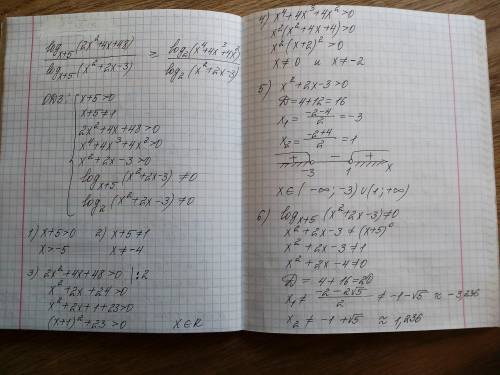 log_{x+5}(2x²+4x+48) / log_{x+5}(x²+2x-3) ≥ log₂(x⁴+4x³+4x²) / log₂(x²+2x-3)
ОДЗ: { x+5>0
x+5≠1
2x²+4x+48>0
x⁴+4x³+4x²>0
x²+2x-3>0
log_{x+5}(x²+2x-3) ≠0
log₂(x²+2x-3)≠0
1) x+5>0 2) x+5≠1
x>-5 x≠-4
3) 2x²+4x+48>0 |:2
x²+2x+24>0
x²+2x+1+23>0
(x+1)²+23>0 x∈R
4) x⁴+4x³+4x²>0
x²(x²+4x+4)>0
x²(x+2)²>0
x≠0 и x≠-2
5) x²+2x-3>0
D=4+12=16
x₁=(-2-4)/2=-3
x₂=(-2+4)/2=1
+ - +
-3 1 x
x∈(-∞;-3)∪(1;+∞)
6) log_{x+5}(x²+2x-3)≠0
x²+2x-3≠(x+5)⁰
x²+2x-3≠1
x²+2x-4≠0
D=4+16=20
x₁≠(-2-2√5)/2≠-1-√5≈-3,236
x₂≠-1+√5≈1,236